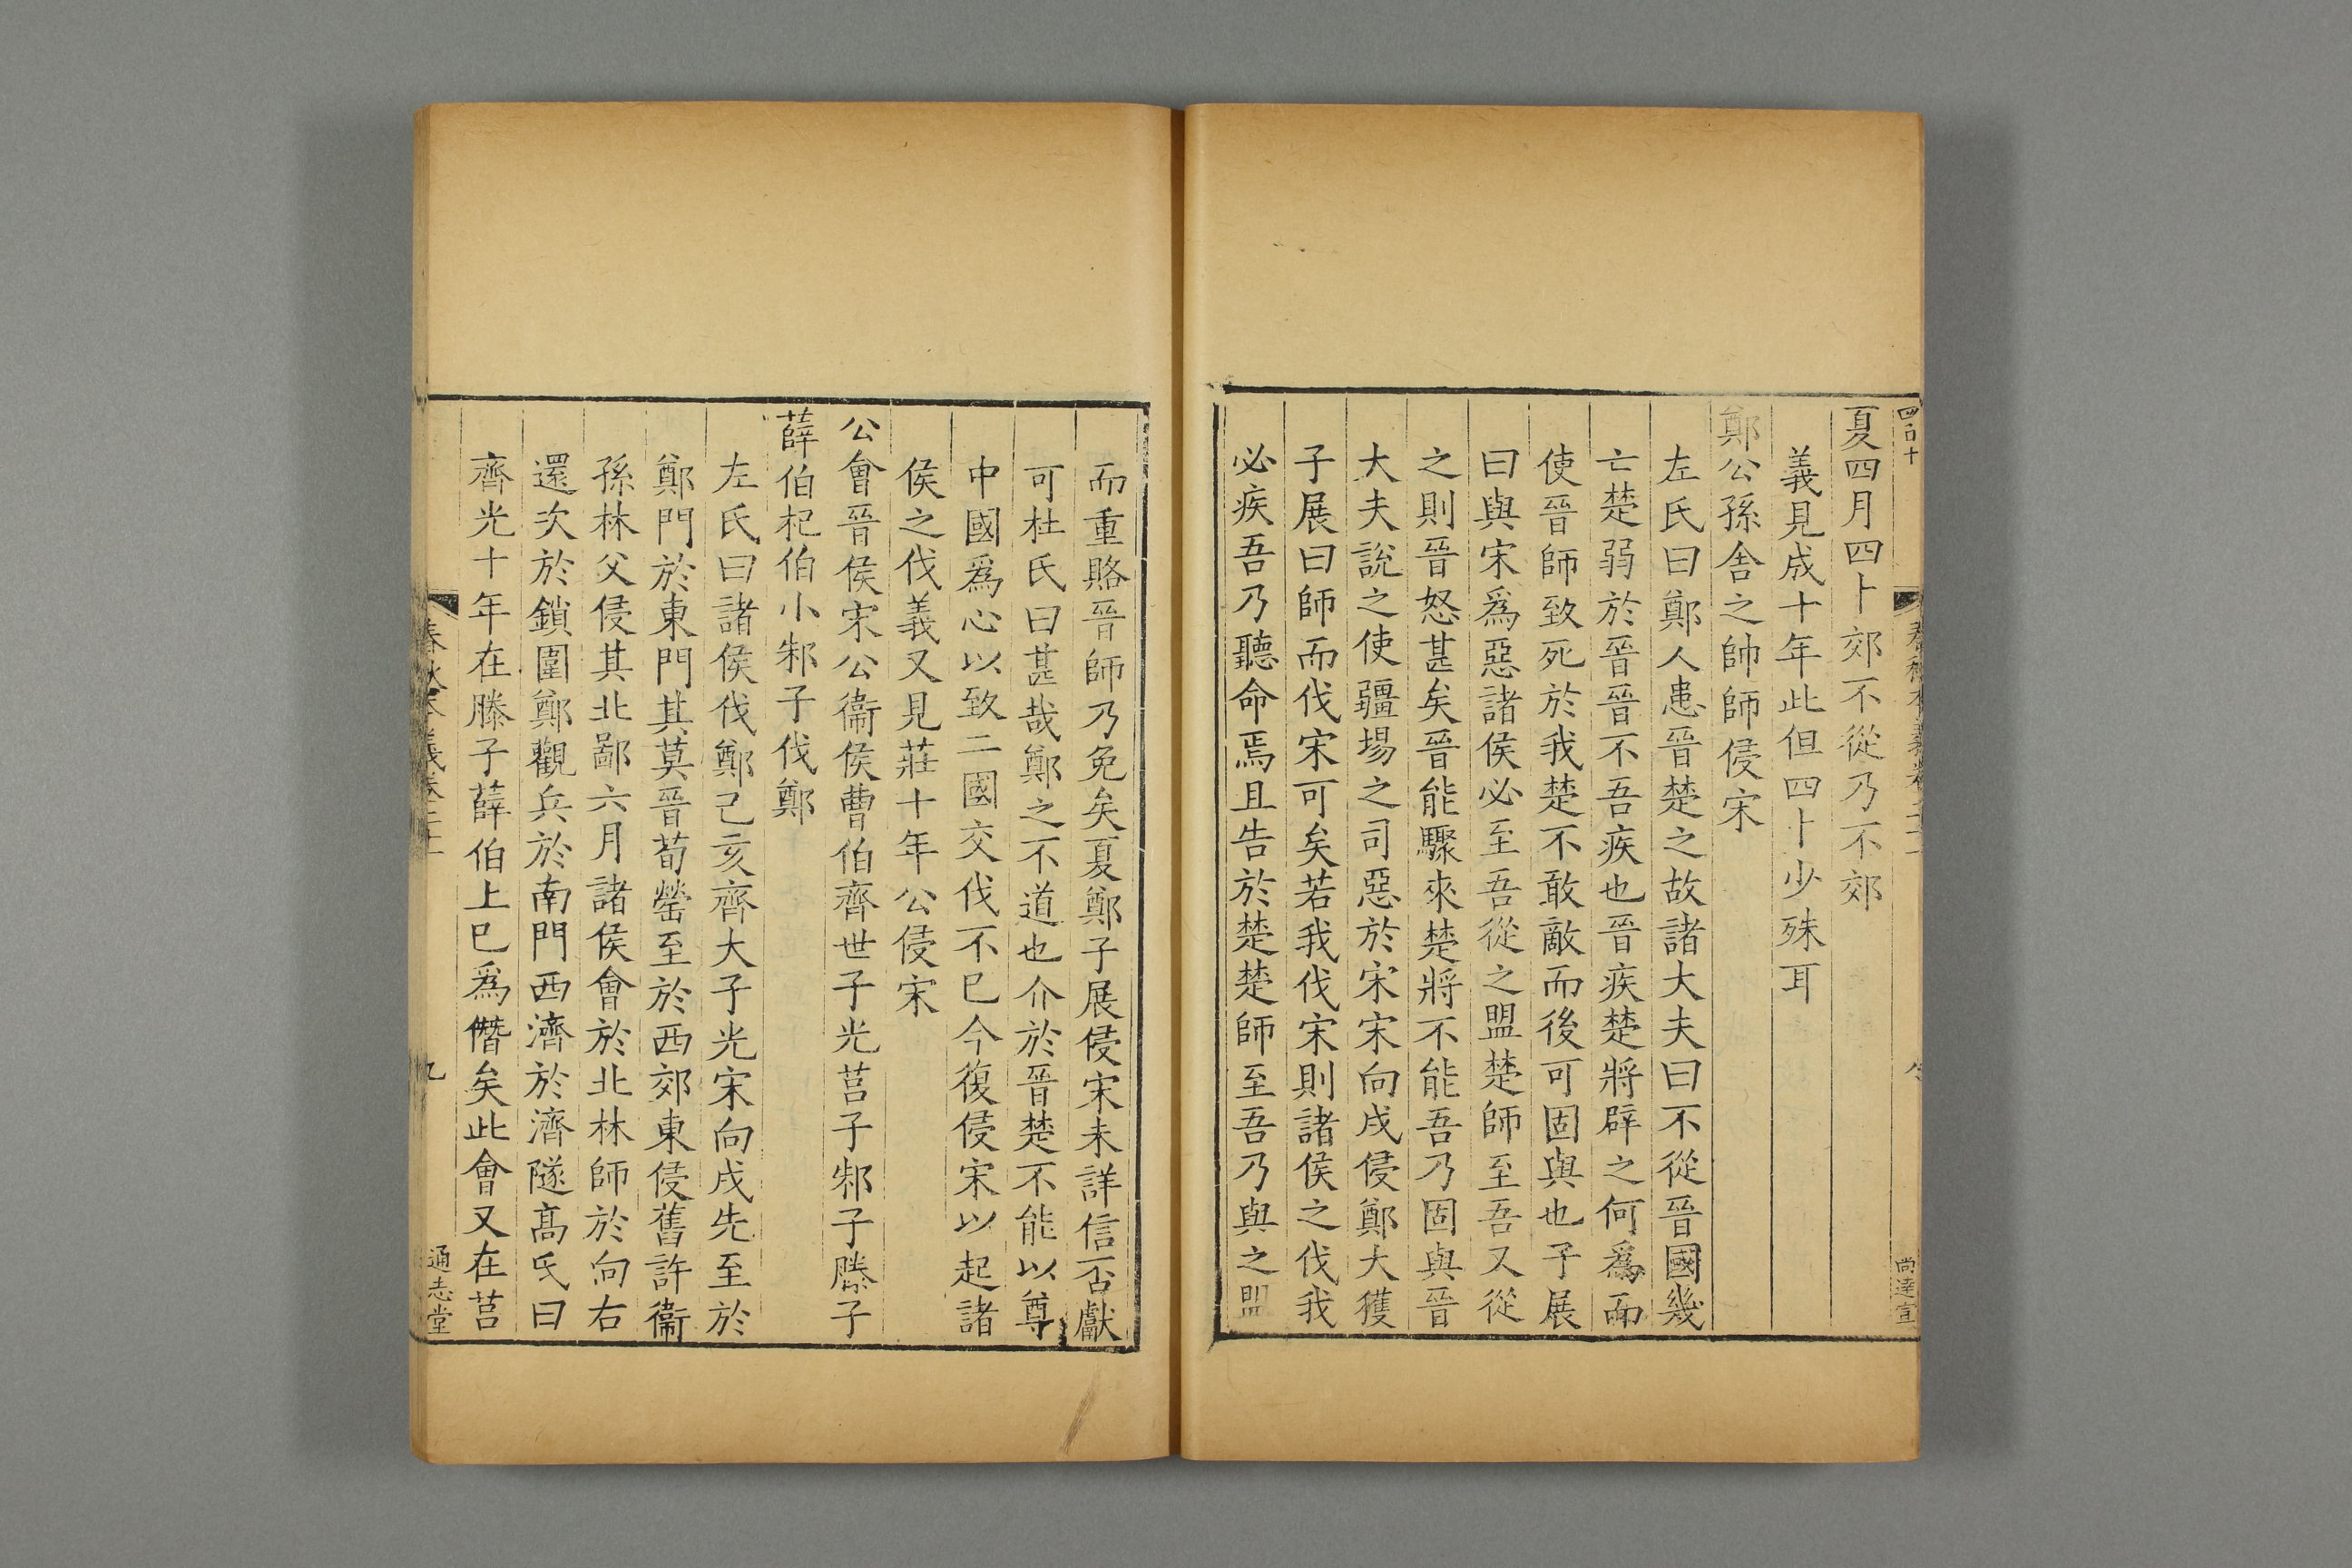 夏四月四卜郊不從乃不郊
義見成十年此但四卜少殊耳
鄭公孫舍之帥師侵宋
左氏曰鄭人患晉楚之故諸大夫曰不從晉國幾
亡楚弱於晉晉不吾疾也晉疾楚將辟之何爲而
使晉師致死於我楚不敢敵而後可固與也子展
曰與宋爲惡諸侯必至吾從之盟楚師至吾又從
之則晉怒甚矣晉能驟來楚將不能吾乃固與晉
大夫說之使疆埸之司惡於宋宋向戌侵鄭大獲
子展曰師而伐宋可矣若我伐宋則諸侯之伐我
必疾吾乃聽命焉且告於楚楚師至吾乃與之盟
而重賂晉師乃免矣夏鄭子展侵宋未詳信否獻
可杜氏曰甚哉鄭之不道也介於晉楚不能以尊
中國爲心以致二國交伐不已今復侵宋以起諸
侯之伐義又見莊十年公侵宋
公會晉侯宋公衞侯曹伯齊世子光莒子邾子滕子
薛伯杞伯小邾子伐鄭
左氏曰諸侯伐鄭己亥齊大子光宋向戌先至於
鄭門於東門其莫晉荀罃至於西郊東侵舊許衞
孫林父侵其北鄙六月諸侯會於北林師於向右
還次於鎖圍鄭觀兵於南門西濟於濟隧高氏曰
齊光十年在滕子薛伯上已爲僭矣此會又在莒
春秋本義卷二十
九
通志堂